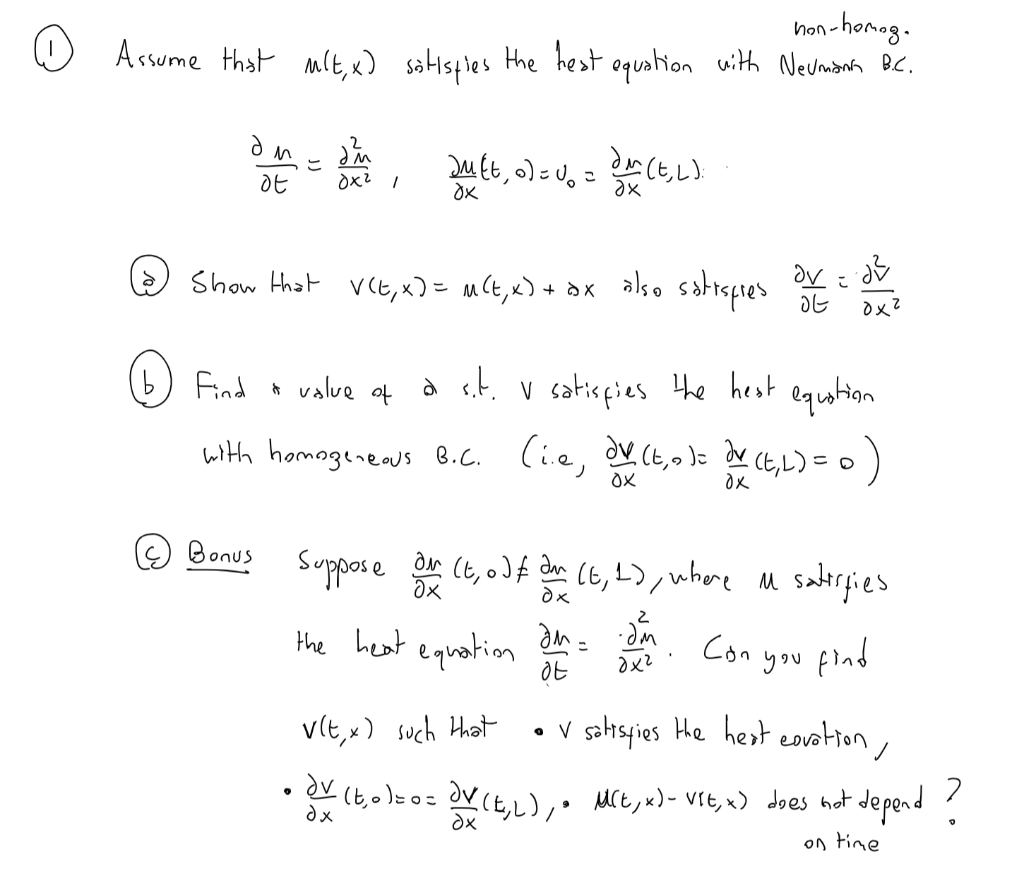 non-homog.
① Assume that u(t,x) satisfies the heat equation with Neumann B.C.
∂u/∂t = ∂²u/∂x² , ∂u/∂x (t,0) = U₀ = ∂u/∂x (t,L).
ⓐ Show that v(t,x) = u(t,x) + ax also satisfies ∂v/∂t = ∂²v/∂x²
ⓑ Find a value of a s.t. v satisfies the heat equation
with homogeneous B.C. (i.e, ∂v/∂x (t,0) = ∂v/∂x (t,L) = 0)
ⓒ Bonus Suppose ∂u/∂x (t,0) ≠ ∂u/∂x (t,L), where u satisfies
the heat equation ∂u/∂t = ∂²u/∂x². Can you find
v(t,x) such that • v satisfies the heat eqution,
• ∂v/∂x (t,0) = 0 = ∂v/∂x (t,L), • u(t,x) - v(t,x) does not depend ?
on time